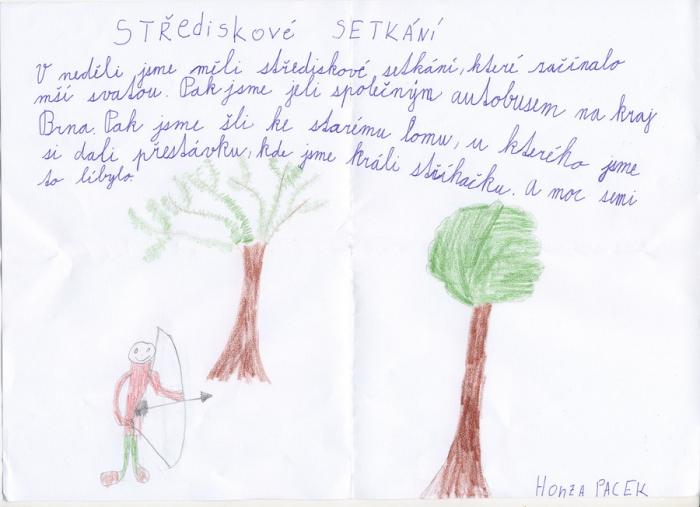 STŘediskové SETKÁNÍ
V neděli jsme měli střediskové setkání, které začínalo
mší svatou. Pak jsme jeli společným autobusem na kraj
Brna. Pak jsme šli ke starému lomu, u kterého jsme
si dali přestávku, kde jsme hráli stříhačku. A moc semi
to líbylo.
Honza PACEK